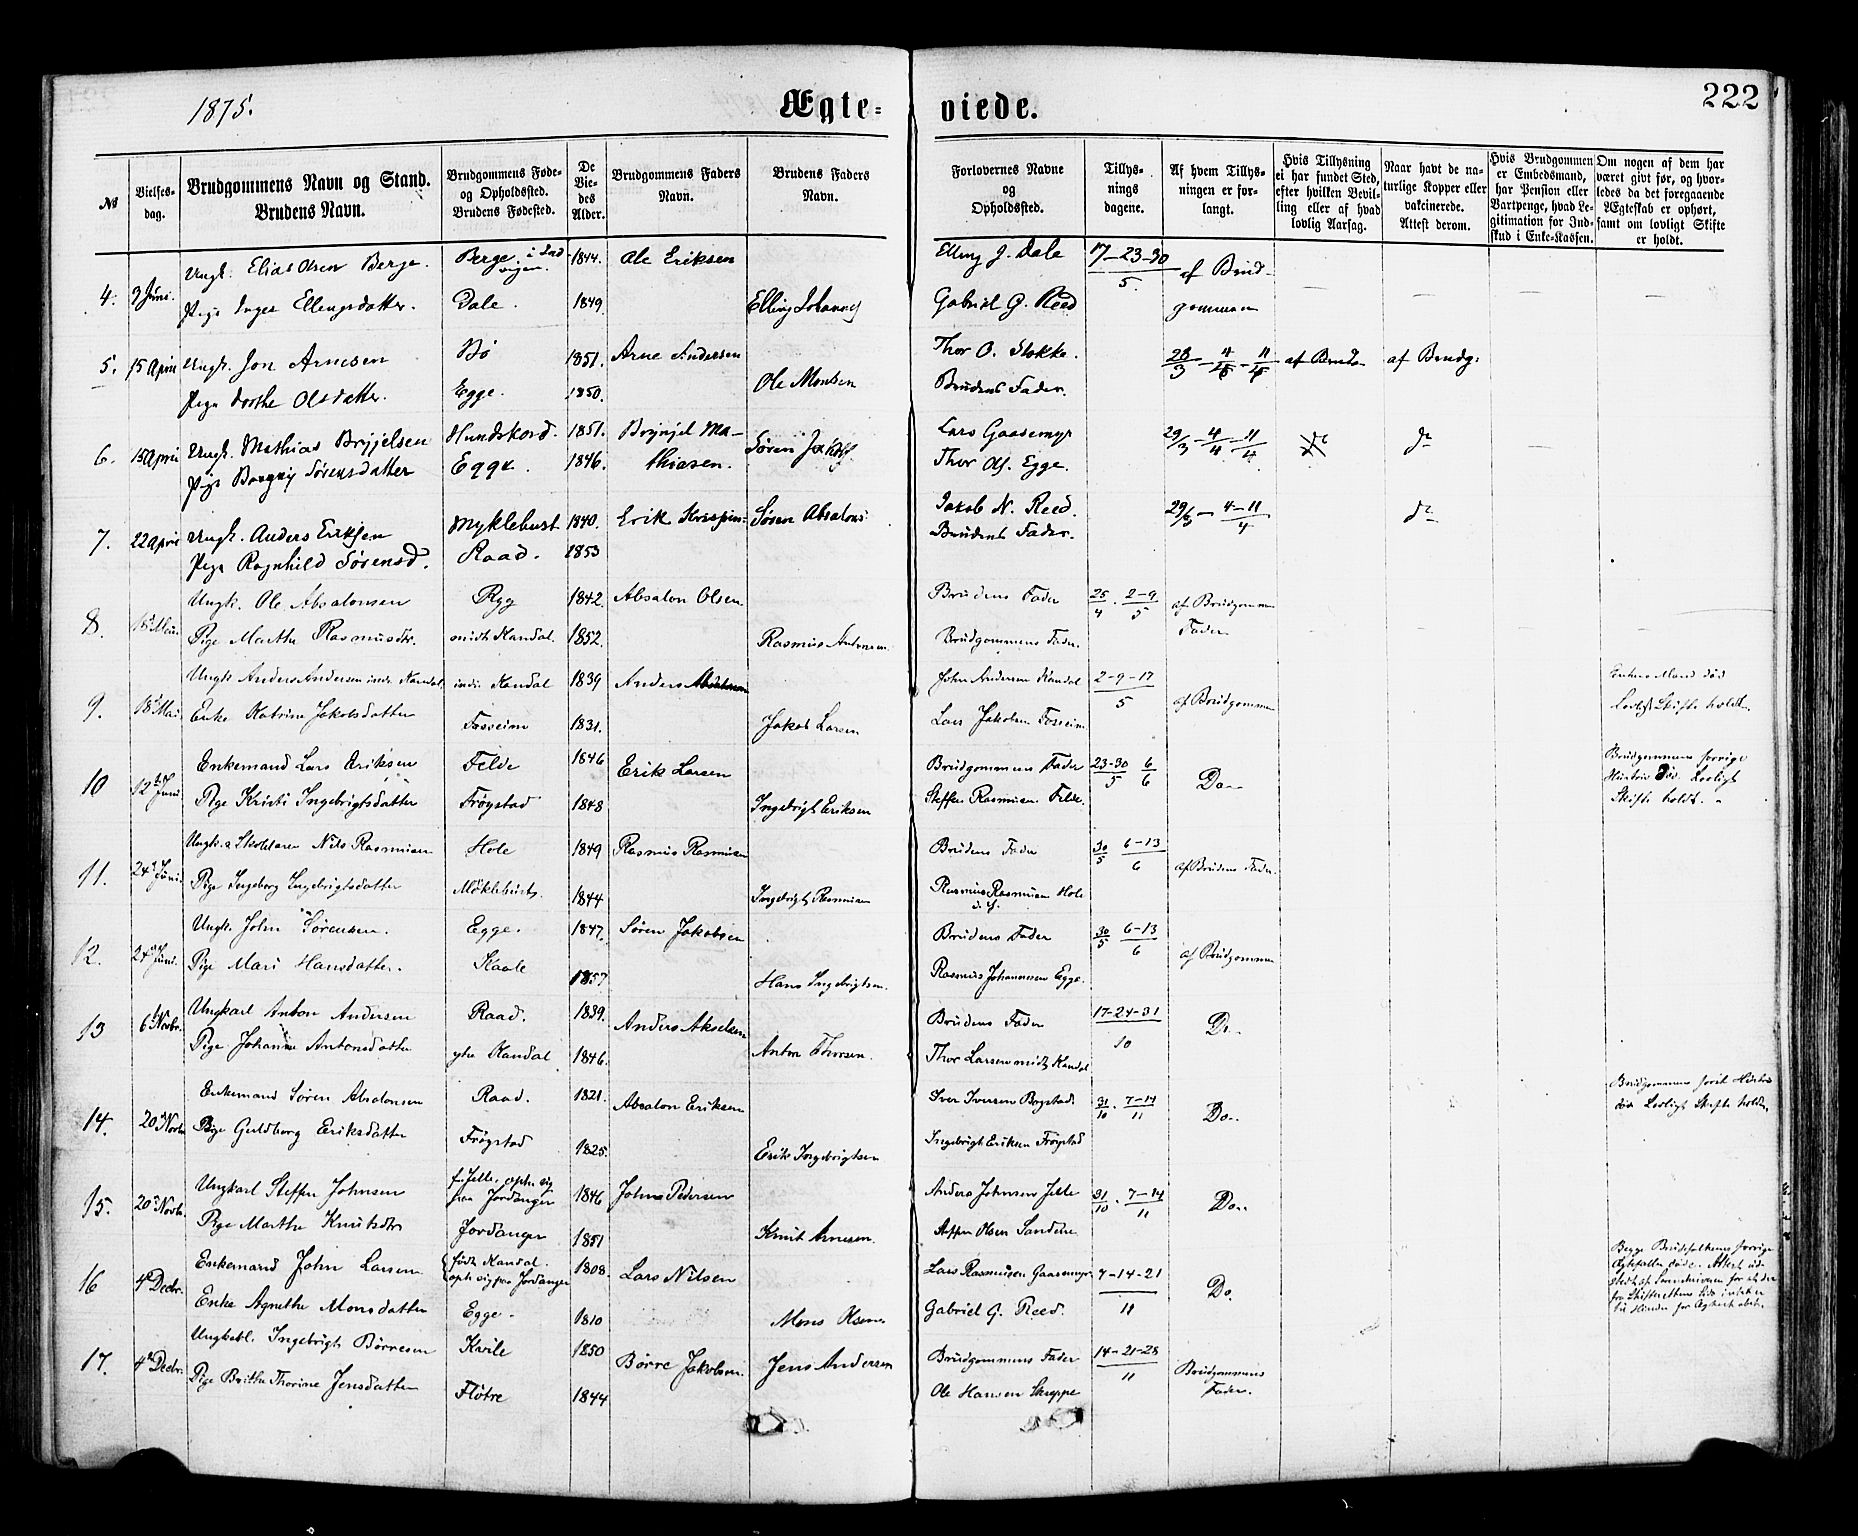 1875.
Ægte-
viede.
222
No
Vielses-
dag.
Brudgommens Navn og Stand.
Brudens Navn.
Brudgommens Føde-
og Opholdssted.
Brudens Fødested.
De
Vie-
des
Alder.
Brudgommens Faders
Navn.
Brudens Faders
Navn.
Forlovernes Navne
og
Opholdssted.
Tillys-
nings
dagene.
Af hvem Tillys-
ningen er for-
langt.
Hvis Tillysning
ei har fundet Sted,
efter hvilken Bevil-
ling eller af hvad
lovlig Aarsag.
Naar havt de na-
turlige Kopper eller
vakcinerede.
Attest derom.
Hvis Brudgommen
er Embedsmand,
har Pension eller
Vartpenge, hvad Le-
gitimation for Ind-
skud i Enke-Kassen.
Om nogen af dem har
været givt før, og hvor-
ledes da det foregaaende
Ægteskab er ophørt,
samt om lovligt Skifte
er holdt.
4. 3 Juni. Ungk. Elias Olsen Berge. Berge i Ind- 1844. Ole Eriksen Elling J. Dale 17-23-30/5 af Brud-
vigen.
Pige Inger Ellingsdatter. Dale. 1849. Elling Johannes Gabriel G. Reed gommen
5. 15 April Ungk. Jon Arnesen Bø 1851. Arne Andersen Thor O. Stokke. 28/3 - 4/4 - 11/4 af Brudg. af Brudg:
Pige Dorthe Olsdatter. Egge. 1850. Ole Monsen Brudens Fader.
6. 15 April Ungk. Mathias Brynjelsen Hundskord. 1851. Brynjel Ma- Søren Jakobs Lars Gaasemyr 29/3 - 4/4 - 11/4 do do
Pige Borgny Sørensdatter Egge. 1846. thiasen. Thor Ols. Egge.
7. 22 April Ungk. Anders Eriksen Myklebust 1840. Erik Krispin- Søren Absalons: Jakob N. Reed. 29/3 - 4-11/4 do
Pige Ragnhild Sørensd. Raad. 1853 Brudens Fader.
8. 18 Mai Ungk. Ole Absalonsen Ryg 1842. Absalon Olsen Brudens Fader 25/4 . 2-9/5 af Brudgommens
Fader
Pige Marthe Rasmusdtr. midt Kandal. 1852. Rasmus Andersen Brudgommens Fader.
9. 18 Mai Ungk. Anders Andersen indre Kandal indre Kandal 1839 Anders Absalonsen John Andersen Kandal 2-9-17/5 af Brudgommen Enkens Mand død
Enke Katrine Jakobsdatter Fosseim 1831. Jakob Larsen Lars Jakobsen Fosseim Lovligt Skifte holdt.
10 12 Juni Enkemand Lars Eriksen Felde 1846 Erik Larsen Brudgommens Fader 23-30/5 6/6 Do. Brudgommens forrige
Hustru død. Lovligt
Pige Kristi Ingebrigtsdatter Frøystad 1848 Ingebrigt Eriksen Steffen Rasmusen Felde. Skifte holdt.
11. 24 Juni Ungk. Skolelærer Nils Rasmusen Hole 1849 Rasmus Rasmusen Brudens Fader 30/5 6-13/6 af Brudens Fader.
Pige Ingeborg Ingebrigtsdatter Møklebust. 1844 Ingebrigt Rasmusen Rasmus Rasmusen Hole
12. 24 Juni. Ungk. John Sørensen. Egge. 1847. Søren Jakobsen Brudens Fader 30/5 6-13/6 af Brudgommen
Pige Mari Hansdatter. Skaale 1857 Hans Ingebrigtsen. Rasmus Johannesen Egge.
13 6 Novbr. Ungkarl Anton Andersen Raad. 1839. Anders Akselsen Brudens Fader 17-24-31/10 Do.
Pige Johanne Antonsdatter ytre Kandal 1846. Anton Thorsen. Thor Larsen midt Kandal
14. 20 Novbr Enkemand Søren Absalonsen Raad. 1821. Absalon Eriksen Iver Iversen Bogstad. 31/10 . 7-14/11 Do. Brudgommens forrit Hustru
død Lovligt Skifte holdt.
Pige Guldborg Eriksdatter Frøystad 1825. Erik Ingebrigtsen Ingebrigt Eriksen Frøystad
15. 20 Novbr. Ungkarl Steffen Johnsen f. Felle, oph. sig 1846 Johns Pedersen Anders Johnsen Felle 31/10 . 7-14/11 Do.
paa Jordanger
Pige Marthe Knutsdtr Jordanger 1851 Knut Arnesen. Steffen Olsen Sandene
16 4 Decbr. Enkemand John Larsen født Kandal. 1808. Lars Nilsen Lars Rasmusen Gaasemyr 7-14-21/11 Do. Begge Brudefolkenes forrige
oph. sig paa Jordanger Ægtefæller døde. Attest ud-
Enke Agnethe Monsdatter Egge. 1810 Mons Olsen Gabriel G. Reed.
17. 4 Decbr. Ungkarl. Ingebrigt Børresen Kvile 1850 Børre Jakobsen. Jens Andersen Brudgommens Fader 14-21-28/11 Brudgommens
Fader.
Pige Brithe Thorine Jensdatter Fløtre 1844 Ole Hansen Skeppe